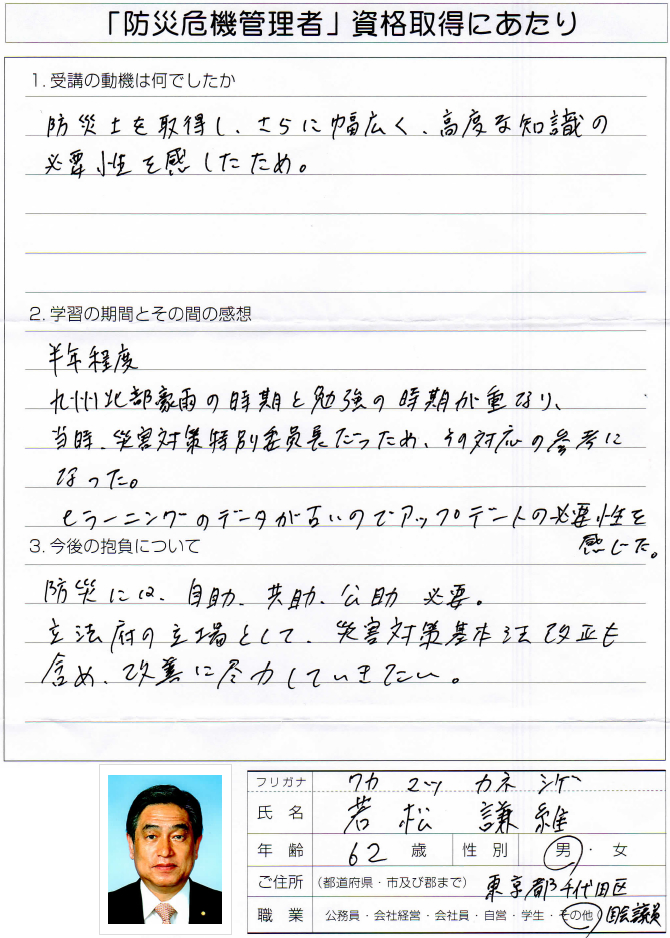 「防災危機管理者」資格取得にあたり
1. 受講の動機は何でしたか
防災士を取得し、さらに幅広く、高度な知識の
必要性を感じたため。
2. 学習の期間とその間の感想
半年程度
九州北部豪雨の時期と勉強の時期が重なり、
当時、災害対策特別委員長だったため、その対応の参考に
なった。
eラーニングのデータが古いのでアップデートの必要性を
感じた。
3. 今後の抱負について
防災には、自助、共助、公助 必要。
立法府の立場として、災害対策基本法改正も
含め、改善に尽力していきたい。
フリガナ ワカ マツ カネ シゲ
氏 名 若 松 謙 維
年 齢 62 歳 性 別 男 ・ 女
ご住所 (都道府県・市及び郡まで) 東京都千代田区
職 業 公務員・会社経営・会社員・自営・学生・その他 国会議員